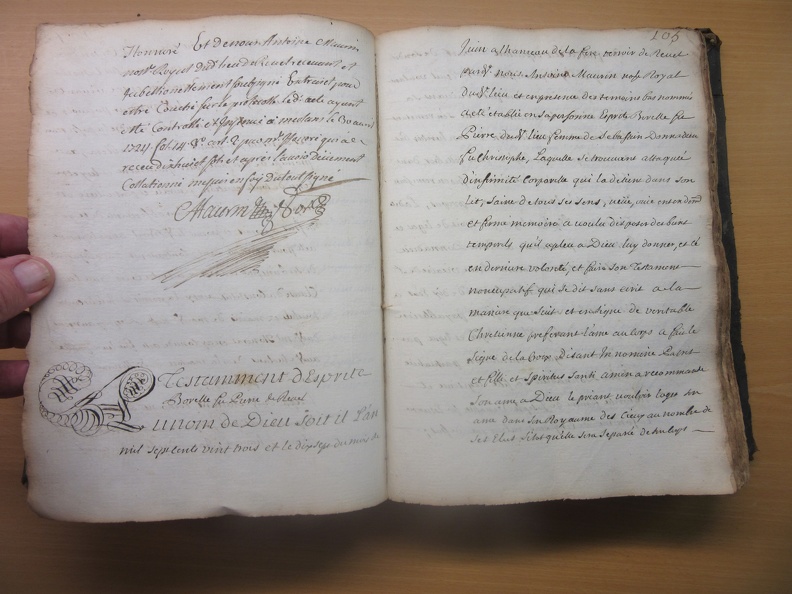 honnoré Et de nous Antoine Maurin
not.e Royal dud. lieu de Revel recevant et
Entrevet, pour
estre Couché sur le protocolle led. acte ayant
esté Controllé et Insinué a
1724 fol 14
receu dix huit sols et apres
Collationné me suis en foy du tout signé
Maurin Not.re
Testamment d'Esprite
Borelle fû Pierre de Revel
Au nom de Dieu soit il L'an
mil sept cents vint trois et le dix sept du mois de
105
Juin a l'hameau de la
pard.t nous Antoine Maurin not.e Royal
dud. lieu et en presence des temoins bas nommés
a esté etablie en sa personne Esprite Borelle fû
Pierre dud. lieu femme de Sebastien Donnadieu
fû Christophe, Laquelle se trouvant attaquée
d'infirmité Corporelle qui la detient dans son
Lit, saine de tous ses sens, veüe, ouie entendem.t
et ferme memoire a voulu disposer des biens
temporels qu'il a pleu a Dieu luy donner, et sa
en derniere volonté, et faire son Testament
noncupatif qui se dit sans ecrit a la
maniere que suit, et en signe de veritable
Chretienne preferant l'ame au corps a fait le
signe de la Croix Disant In nomine Patris
et filii et Spiritus Santi amin a recommandé
son ame a Dieu le priant vouloir loger son
ame dans son Royaume des Cieux au nombre de
ses Elus si tot qu'elle sera separée de son corps